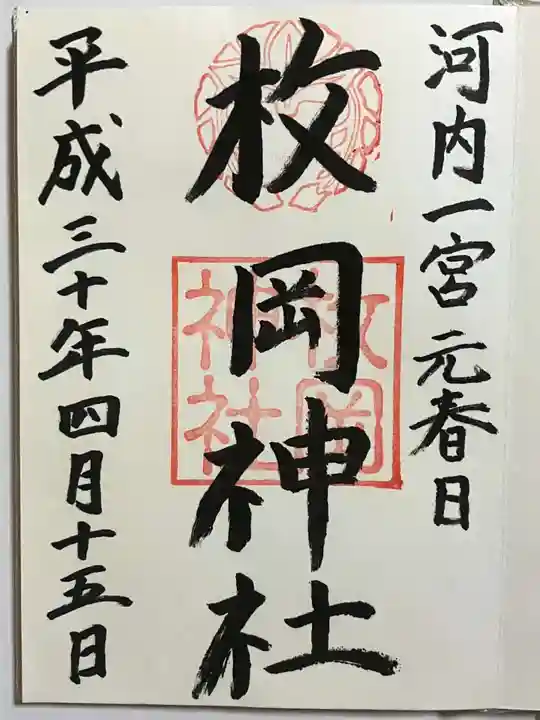 河内一宮元春日
枚岡神社
枚岡
神社
平成三十年四月十五日